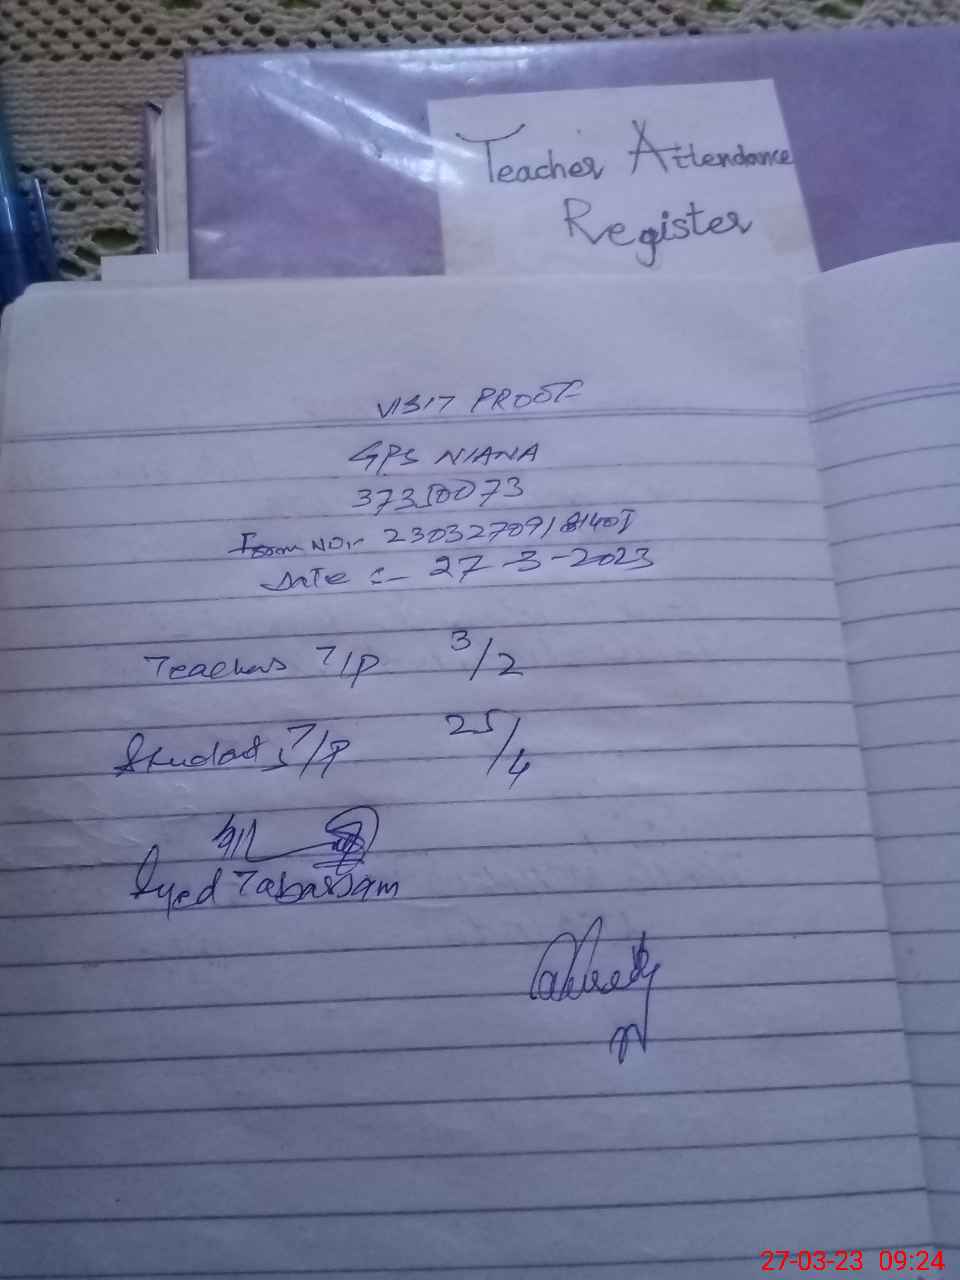 Teacher Attendance
Register
VISIT PROOF
GPS NIANA
37350073
Date :- 27-3-2023
Teachers T/P 3/2
Student T/P 25/4
Syed Tabassam
27-03-23 09:24